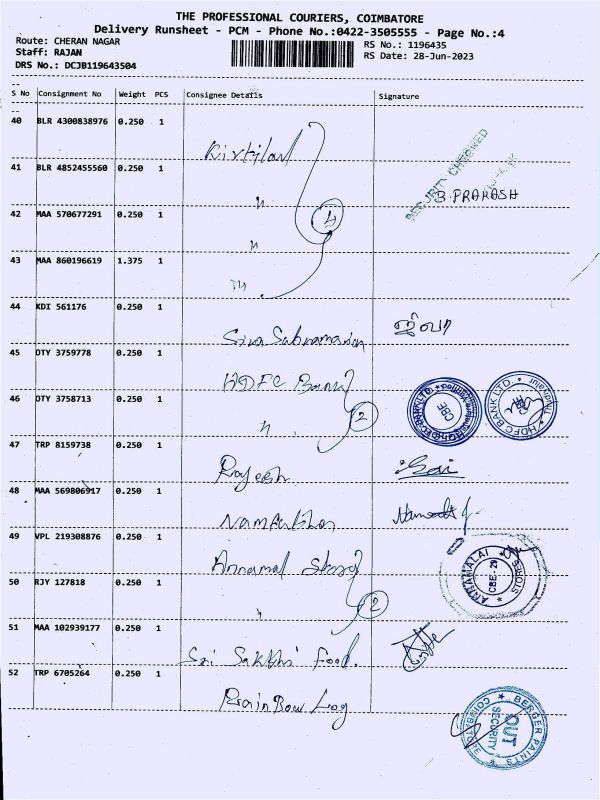 THE PROFESSIONAL COURIERS, COIMBATORE
Delivery Runsheet - PCM - Phone No.:0422-3505555 - Page No.:4
Route: CHERAN NAGAR
Staff: RAJAN
DRS No.: DCJB119643504
RS No.: 1196435
RS Date: 28-Jun-2023
S No Consignment No Weight PCS Consignee Details Signature
40 BLR 4300838976 0.250 1
41 BLR 4852455560 0.250 1
SECURITY CHECKED
B. PRAKASH
42 MAA 570677291 0.250 1 "
4
43 MAA 860196619 1.375 1
44 KDI 561176 0.250 1 Siva Subramanian
45 OTY 3759778 0.250 1 HDFC Bank
46 OTY 3758713 0.250 1 "
2
CBE
HDFC BANK LTD.
47 TRP 8159738 0.250 1 Rajesh
48 MAA 569806917 0.250 1
49 VPL 219308876 0.250 1 Annamal Store
50 RJY 127818 0.250 1 "
2
ANNAMALAI STORES
CBE-29
51 MAA 102939177 0.250 1 Sri Sakthi Food.
52 TRP 6705264 0.250 1 RainBow Log
BERGER PAINTS
COIMBATORE
OUT
SECURITY